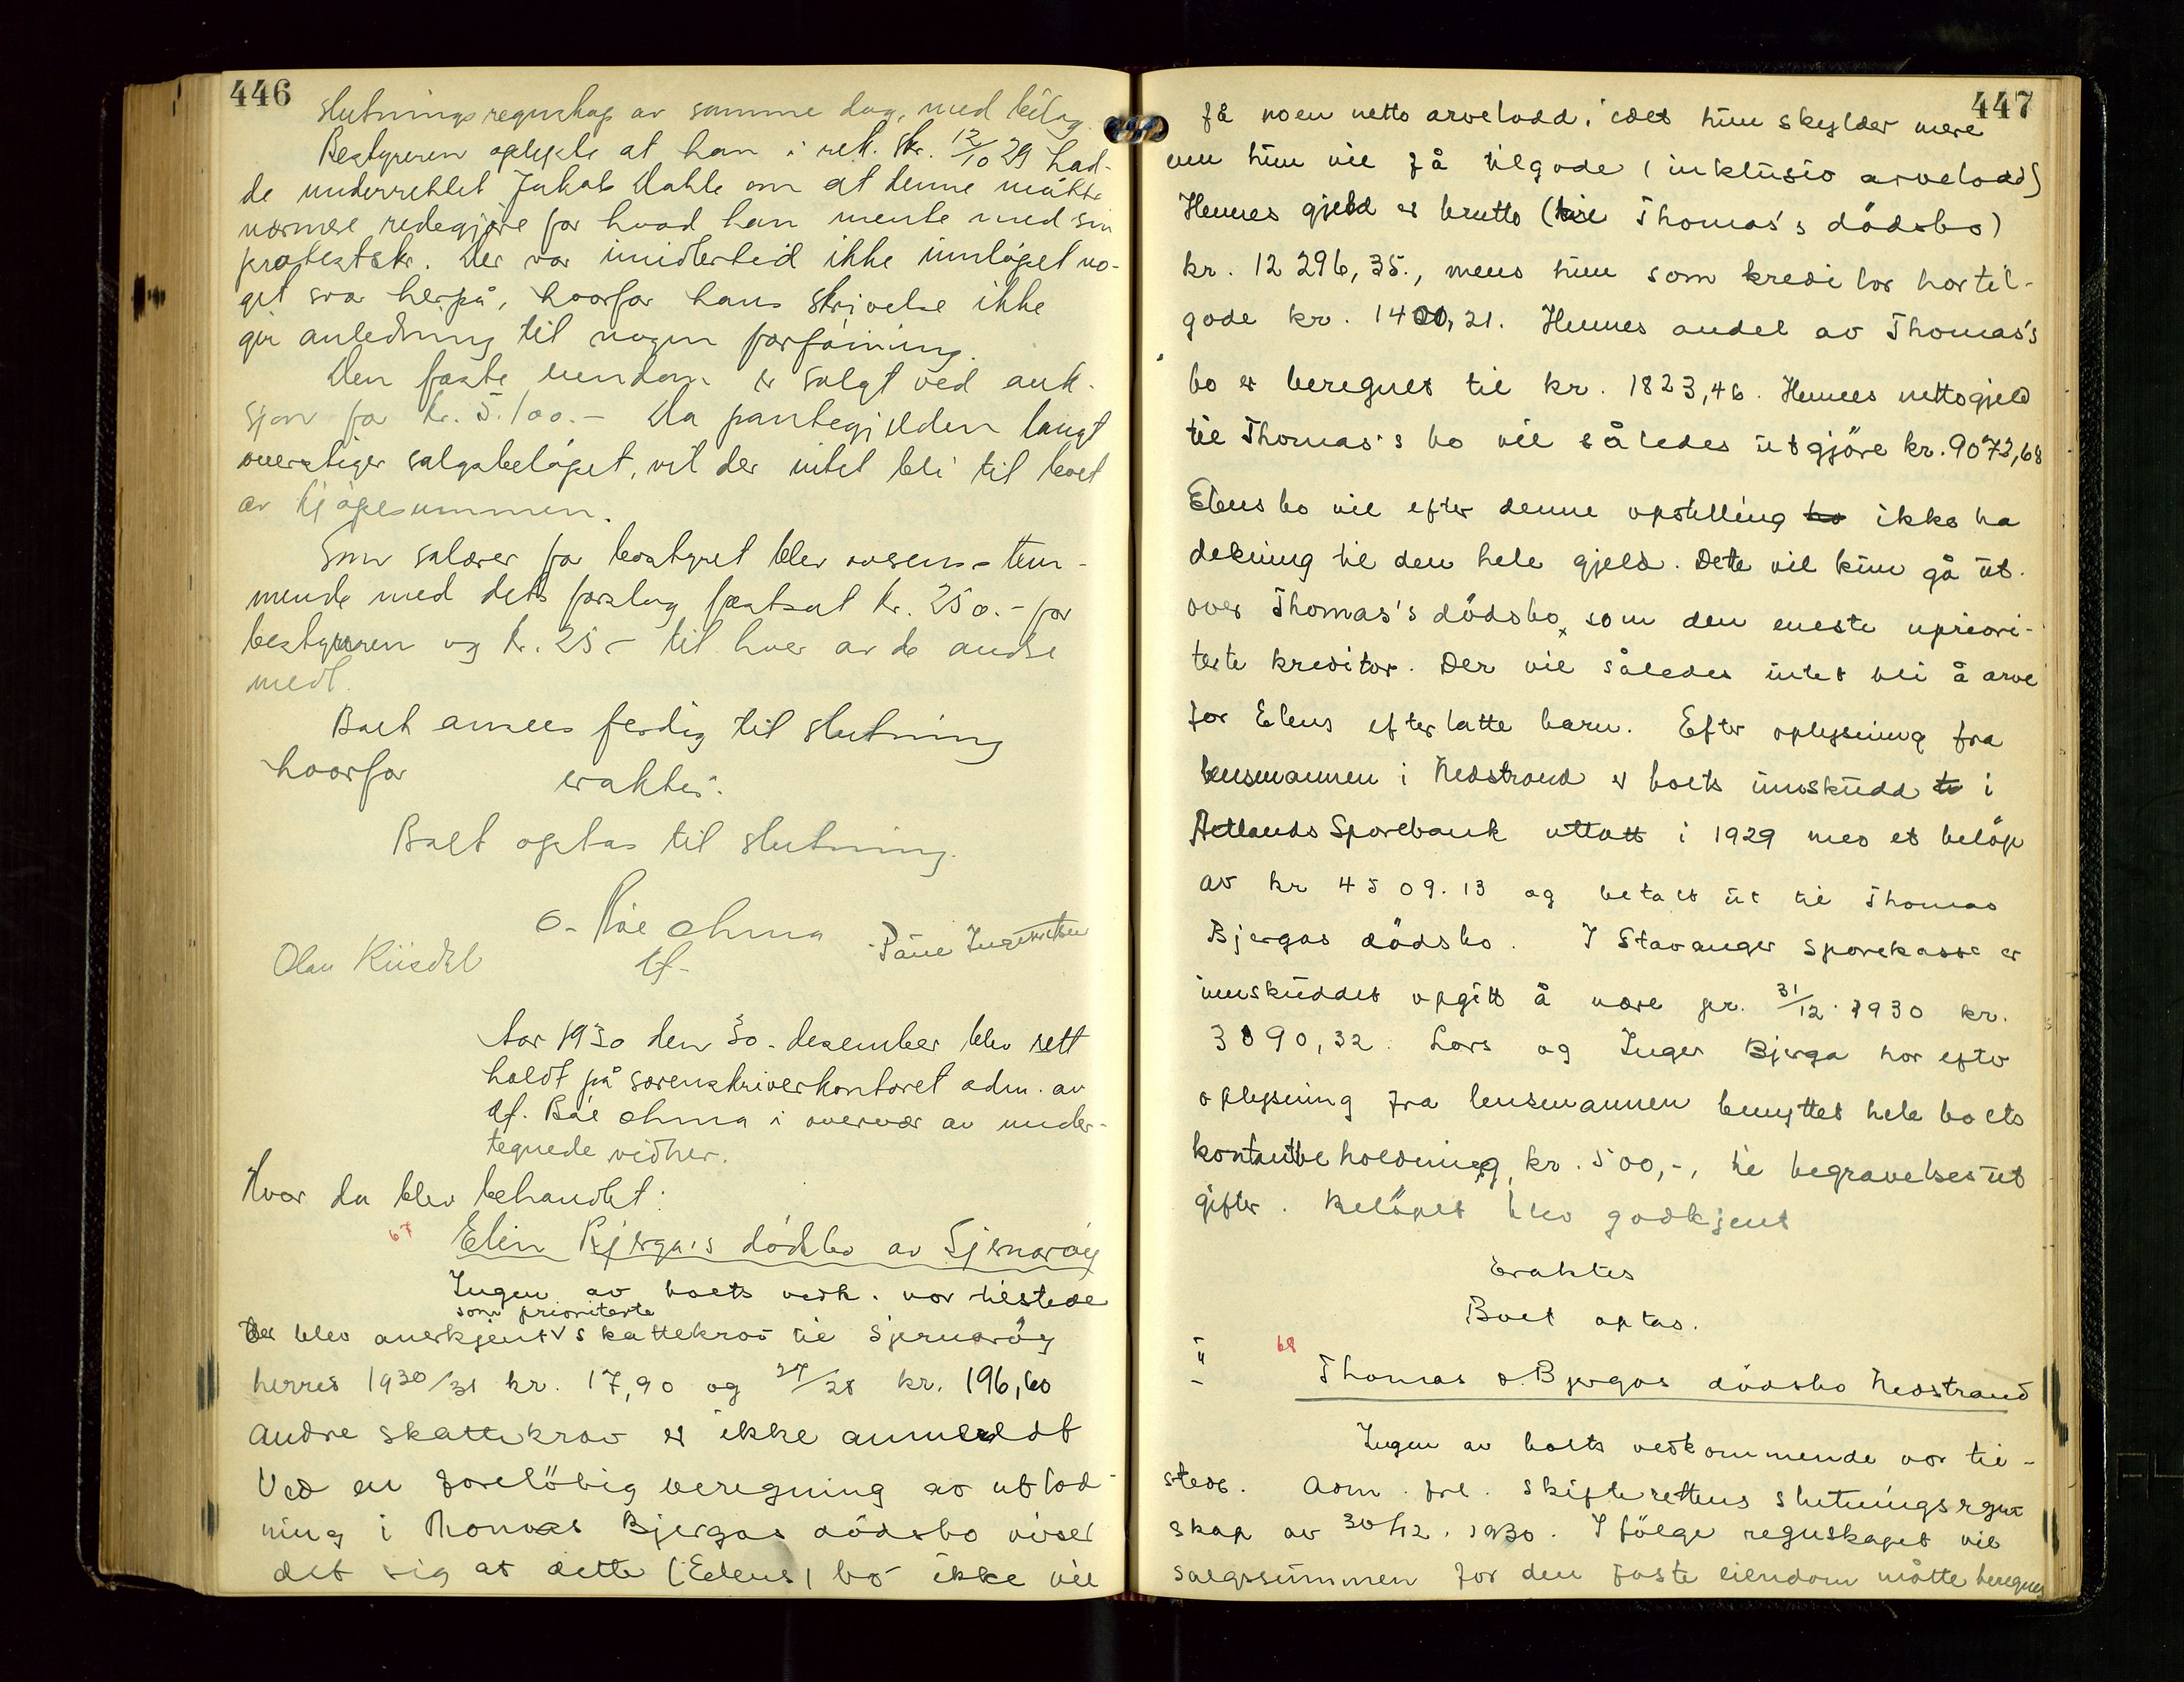 446
slutningsregnskap av samme dag, med bilag.
Bestyreren oplyste at han i rek. skr. 12/10 29 had-
de underrettet Jakob Dahle om at denne måtte
nærmere redegjøre for hvad han mente med sin
protestskr. Der var imidlertid ikke innløpet no-
get svar herpå, hvorfor hans skrivelse ikke
gir anledning til nogen forføining.
Den faste eiendom er solgt ved auk-
sjon for kr. 5.100.- Da pantegjelden langt
overstiger salgsbeløpet, vil der intet bli til boet
av kjøpesummen.
Som salærer for bostyret blev overensstem-
mende med dets forslag fastsat kr. 250.- for
bestyreren og kr. 25.- til hver av de andre
medl.
Boet ansees ferdig til slutning
hvorfor eraktes:
Boet optas til slutning.
O. Røe Ohma
Olav Riisdel
df.
Aar 1930 den 30. desember blev rett
holdt på sorenskriverkontoret adm. av
df. Bøe Ohma i overvær av under-
tegnede vidner.
Hvor da blev behandlet:
67
Elin Bjerga's dødsbo av Sjernarøy
Ingen av boets vedk. var tilstede
som prioriterte
Der blev anerkjent v skattekrav til Sjernarøy
herred 1930/31 kr. 17,90 og 27/28 kr. 196,60
Andre skattekrav er ikke anmeldt
Ved en foreløbig beregning av utlod-
ning i Thomas Bjergas dödsbo viser
det sig at dette (Elens) bo ikke vil
447
få noen netto arvelodd, idet hun skylder mere
enn hun vil få tilgode (inklusiv arvelodd)
Hennes gjeld er brutto (til Thomas's dödsbo)
kr. 12 296,35., mens hun som kreditor har til-
gode kr. 1400,21. Hennes andel av Thomas's
bo er beregnet til kr. 1823,46. Hennes nettogjeld
til Thomas's bo vil således utgjöre kr. 9072,68
Elens bo vil efter denne opstilling bo ikke ha
dekning til den hele gjeld. Dette vil kun gå ut-
over Thomas's dödsbo, som den eneste upriori-
terte kreditor. Der vil således intet bli å arve
for Elens efterlatte barn. Efter oplysning fra
lensmannen i Nedstrand er boets innskudd te i
Aetlands Sparebank uttatt i 1929 med et beløp
av kr 4509.13 og betalt ut til Thomas
Bjergas dödsbo. I Stavanger Sparekasse er
innskuddet opgitt å være pr. 31/12. 1930 kr.
3890,32. Lars og Inger Bjerga har efter
oplysning fra lensmannen benyttet hele boets
kontantbeholdning, kr. 500,-, til begravelsesut
gifter. Beløpet blev godkjent
Eraktes
Boet optas.
68
Thomas O. Bjergas dödsbo Nedstrand
Ingen av boets vedkommende var til-
stede. Adm. frl. skifterettens slutningsregn
skap av 30/12. 1930. Ifölge regnskapet vil
salgssummen for den faste eiendom måtte beregnes